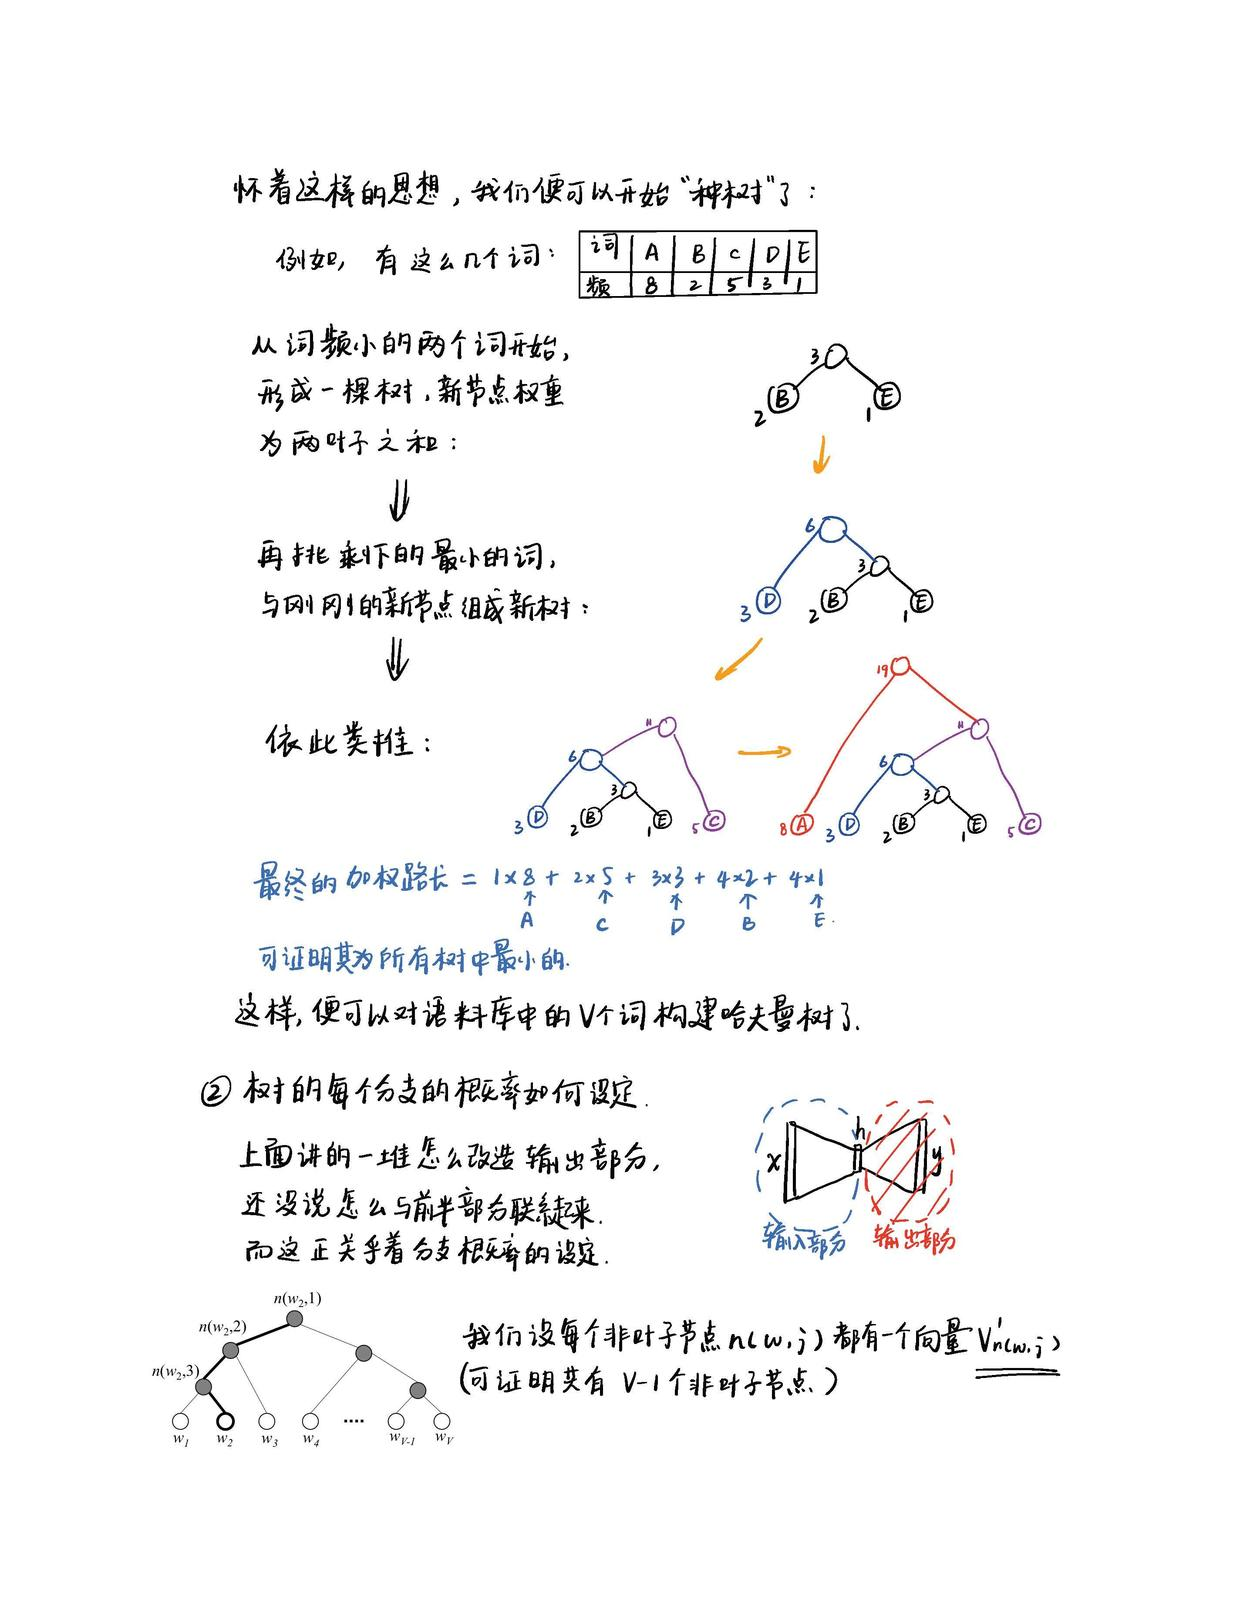 怀着这样的思想，我们便可以开始“种树”了：
例如，有这么几个词：
词 A B C D E
频 8 2 5 3 1
从词频小的两个词开始，
形成一棵树，新节点权重
为两叶子之和：
3
B E
2 1
⇓
再挑剩下的最小的词，
与刚刚的新节点组成新树：
6
3
D B E
3 2 1
⇓
依此类推：
11
6
3
D B E C
3 2 1 5
19
11
6
3
A D B E C
8 3 2 1 5
最终的加权路长 = 1×8 + 2×5 + 3×3 + 4×2 + 4×1
↑ ↑ ↑ ↑ ↑
A C D B E.
可证明其为所有树中最小的.
这样,便可以对语料库中的V个词构建哈夫曼树了.
② 树的每个分支的概率如何设定.
上面讲的一堆怎么改造输出部分,
还没说怎么与前半部分联系起来.
而这正关乎着分支概率的设定.
x h y
输入部分 输出部分
n(w2,1)
n(w2,2)
n(w2,3)
w1 w2 w3 w4 .... wV-1 wV
我们设每个非叶子节点n(w,j)都有一个向量 V'n(w,j)
(可证明共有 V-1个非叶子节点.)